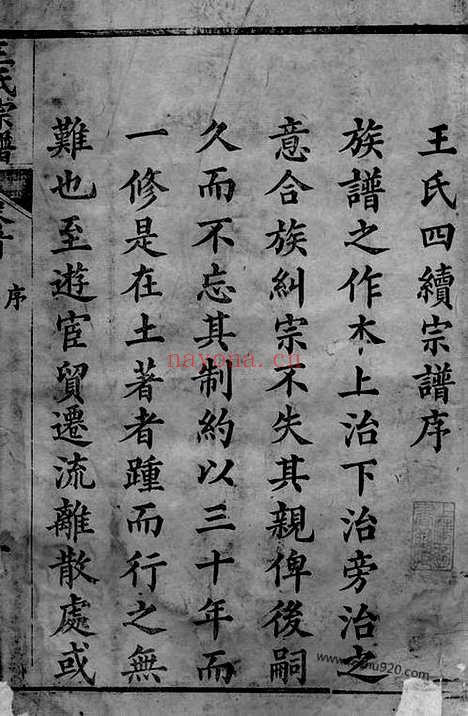 王氏四續宗譜序
族譜之作本上治下治旁治之
意合族糾宗不失其親俾後嗣
久而不忘其制約以三十年而
一修是在土著者踵而行之無
難也至遊宦貿遷流離散處或
王氏宗譜
序
nayona.cn